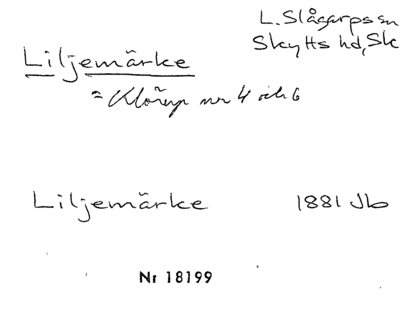 L. Slågarps sn
Skytts hd, Sk
Liljemärke
= Klörup nr 4 och 6
Liljemärke 1881 Jb
Nr 18199